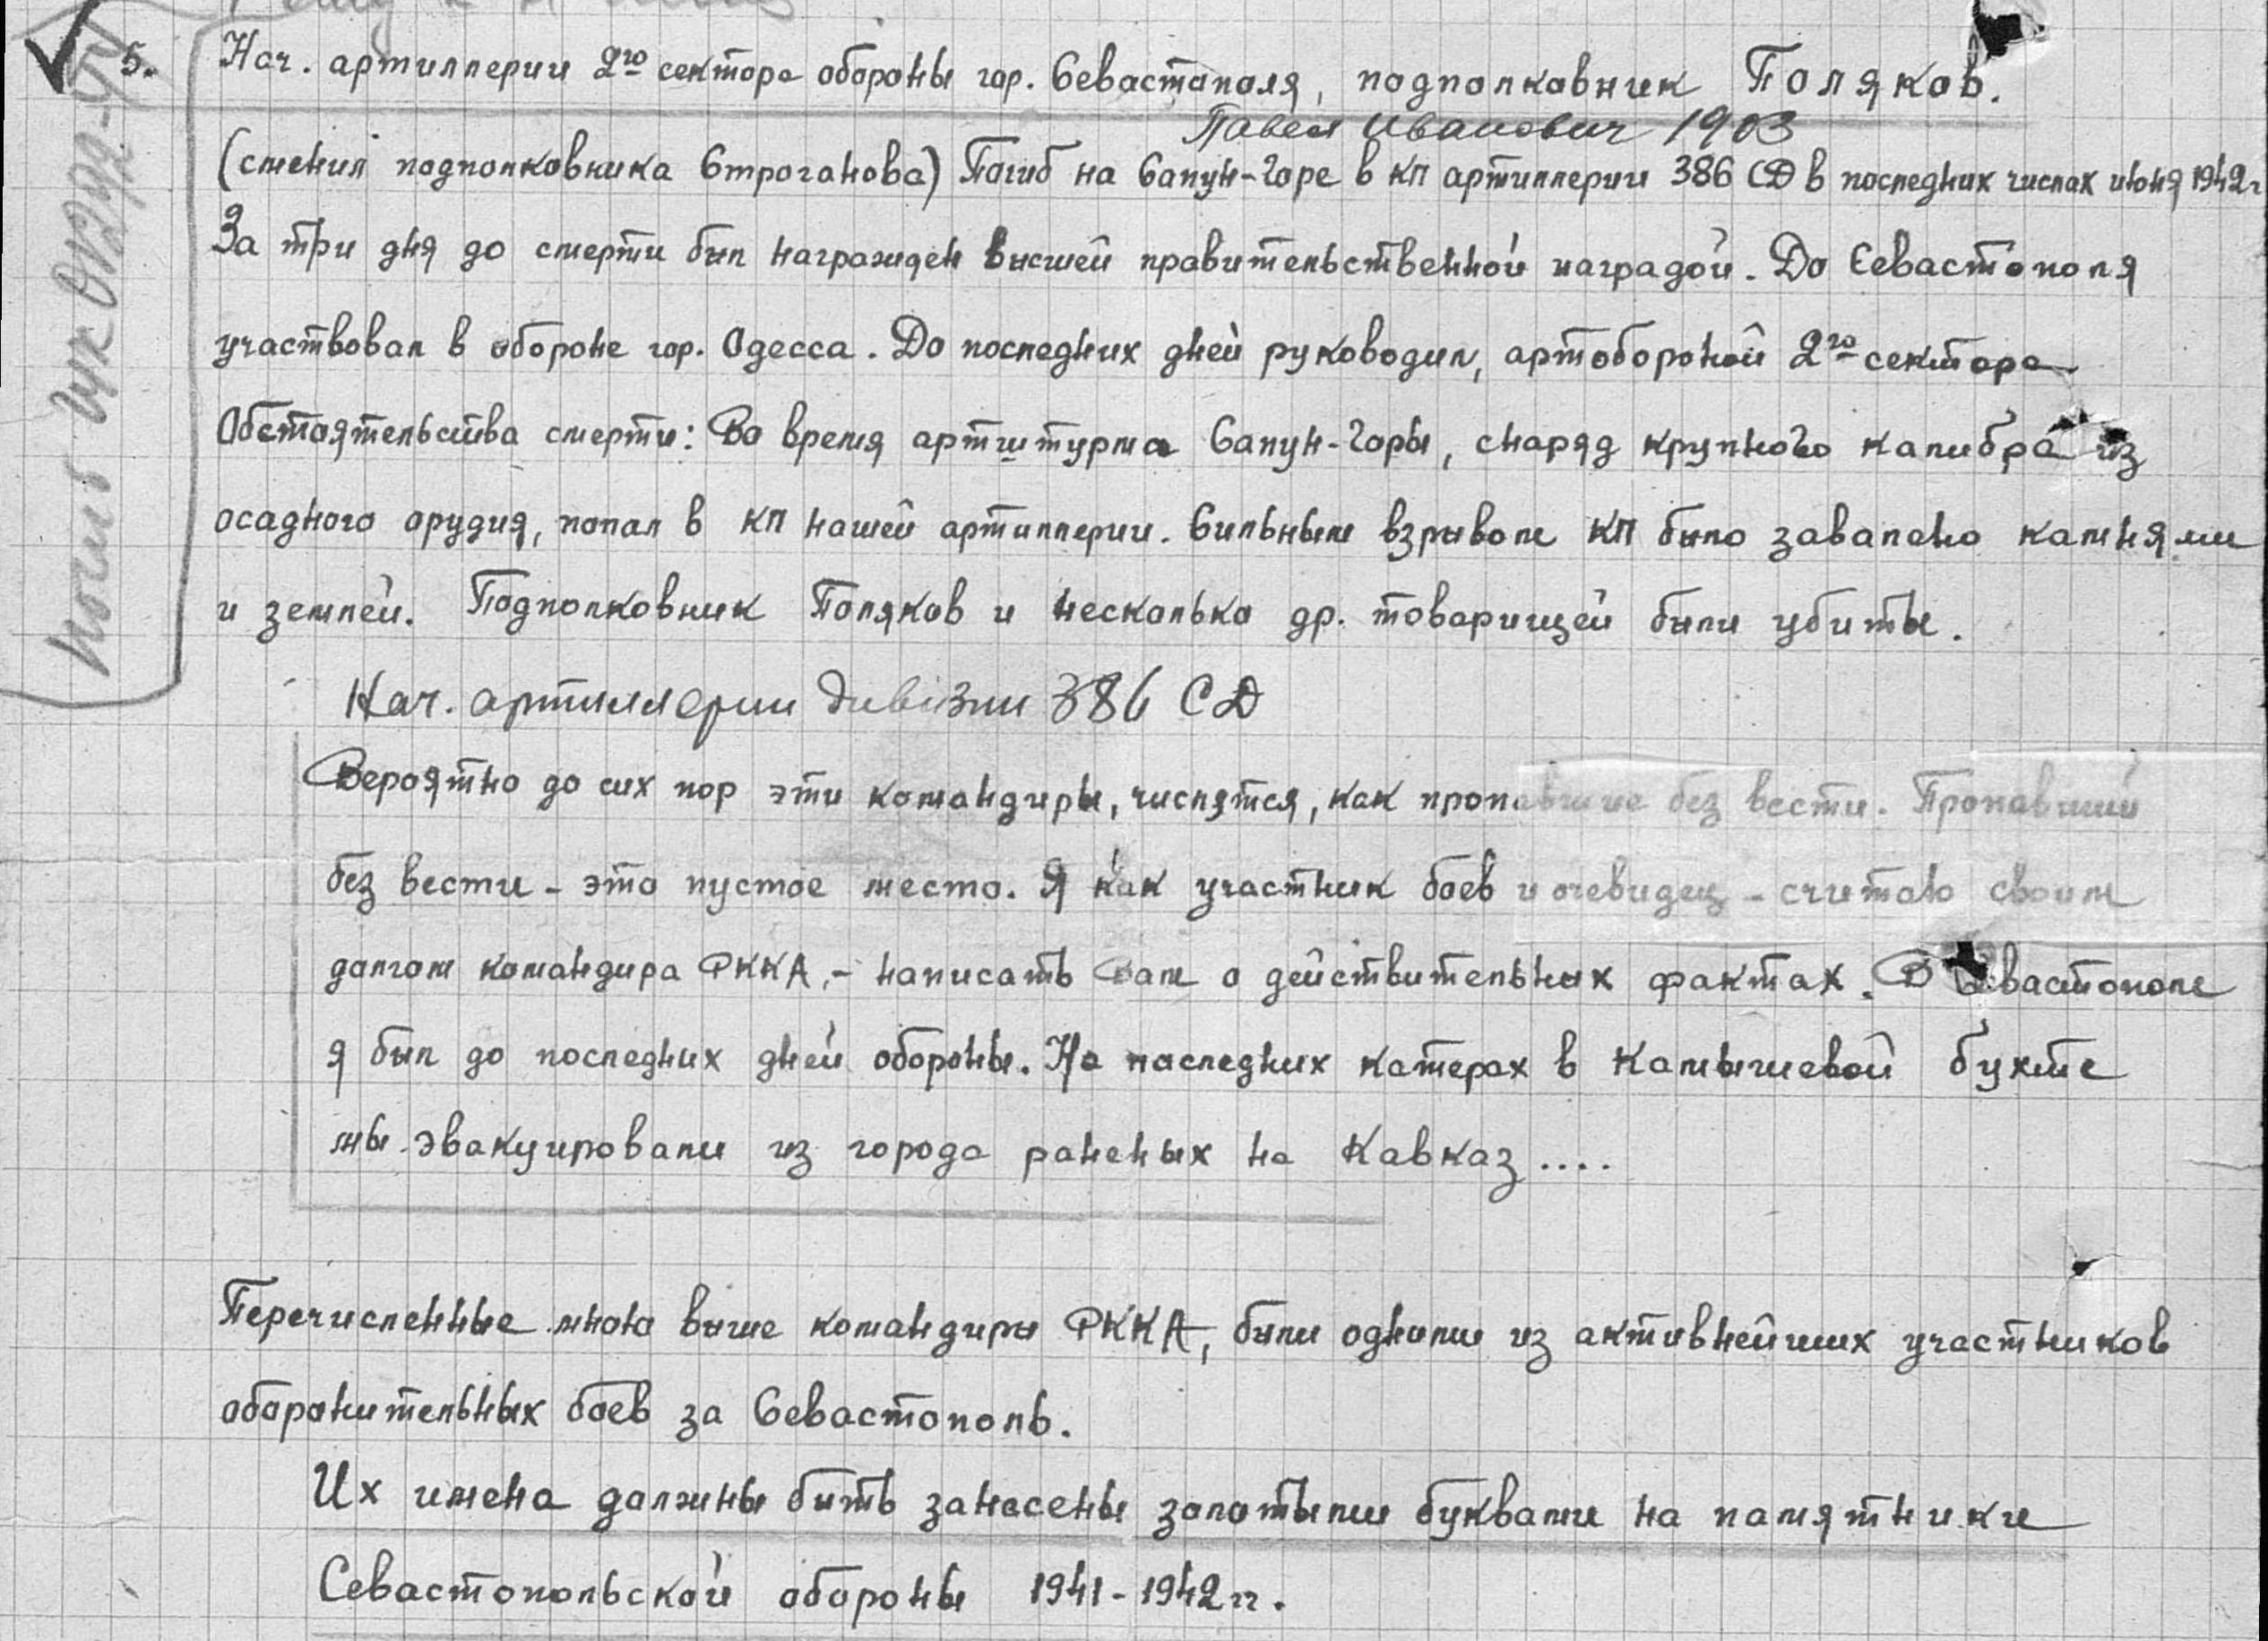 5. Нач. артиллерии 2го сектора обороны гор. Севастополя, подполковник Поляков.
Павел Иванович 1903
(сменил подполковника Строганова) Погиб на Сапун-Горе в КП артиллерии 386 СД в последних числах июня 1942г
За три дня до смерти был награжден высшей правительственной наградой. До Севастополя
участвовал в обороне гор. Одесса. До последних дней руководил, артобороной 2го сектора
Обстоятельства смерти: Во время артштурма Сапун-Горы, снаряд крупного калибра из
осадного орудия, попал в КП нашей артиллерии. Сильным взрывом КП было завалено камнями
и землей. Подполковник Поляков и несколько др. товарищей были убиты.
Нач. артиллерии дивизии 386 СД
Вероятно до сих пор эти командиры, числятся, как пропавшие без вести. Пропавший
без вести - это пустое место. Я как участник боев и очевидец - считаю своим
долгом командира РККА, - написать Вам о действительных фактах. В Севастополе
я был до последних дней обороны. На последних катерах в Камышевой бухте
мы эвакуировали из города раненых на Кавказ ....
Перечисленные мною выше командиры РККА, были одними из активнейших участников
оборонительных боев за Севастополь.
Их имена должны быть занесены золотыми буквами на памятники
Севастопольской обороны 1941-1942гг.